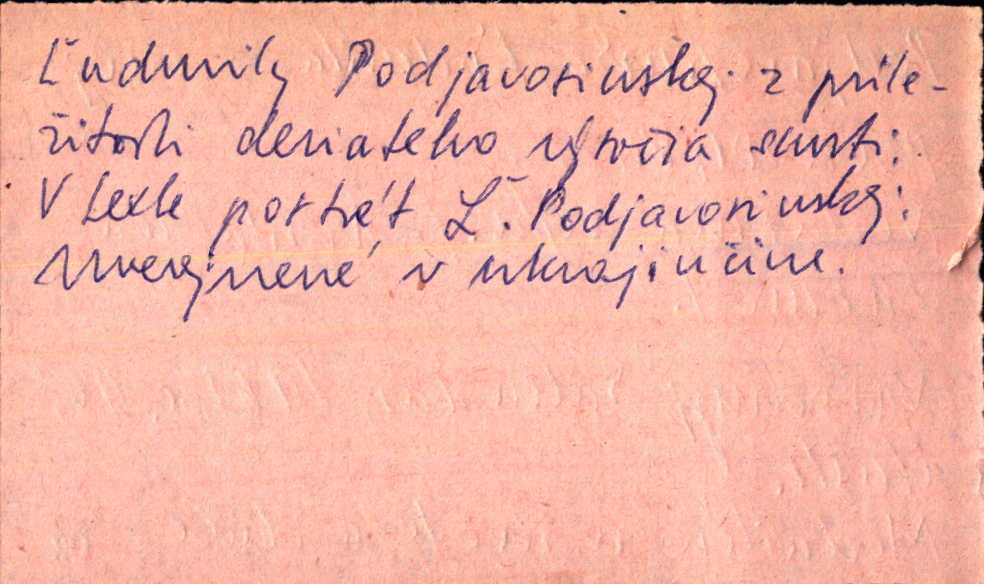 Ľudmily Podjavorinskej z príle-
žitosti desiateho výročia smrti.
V texte portrét Ľ. Podjavorinskej.
Uverejnené v ukrajinčine.